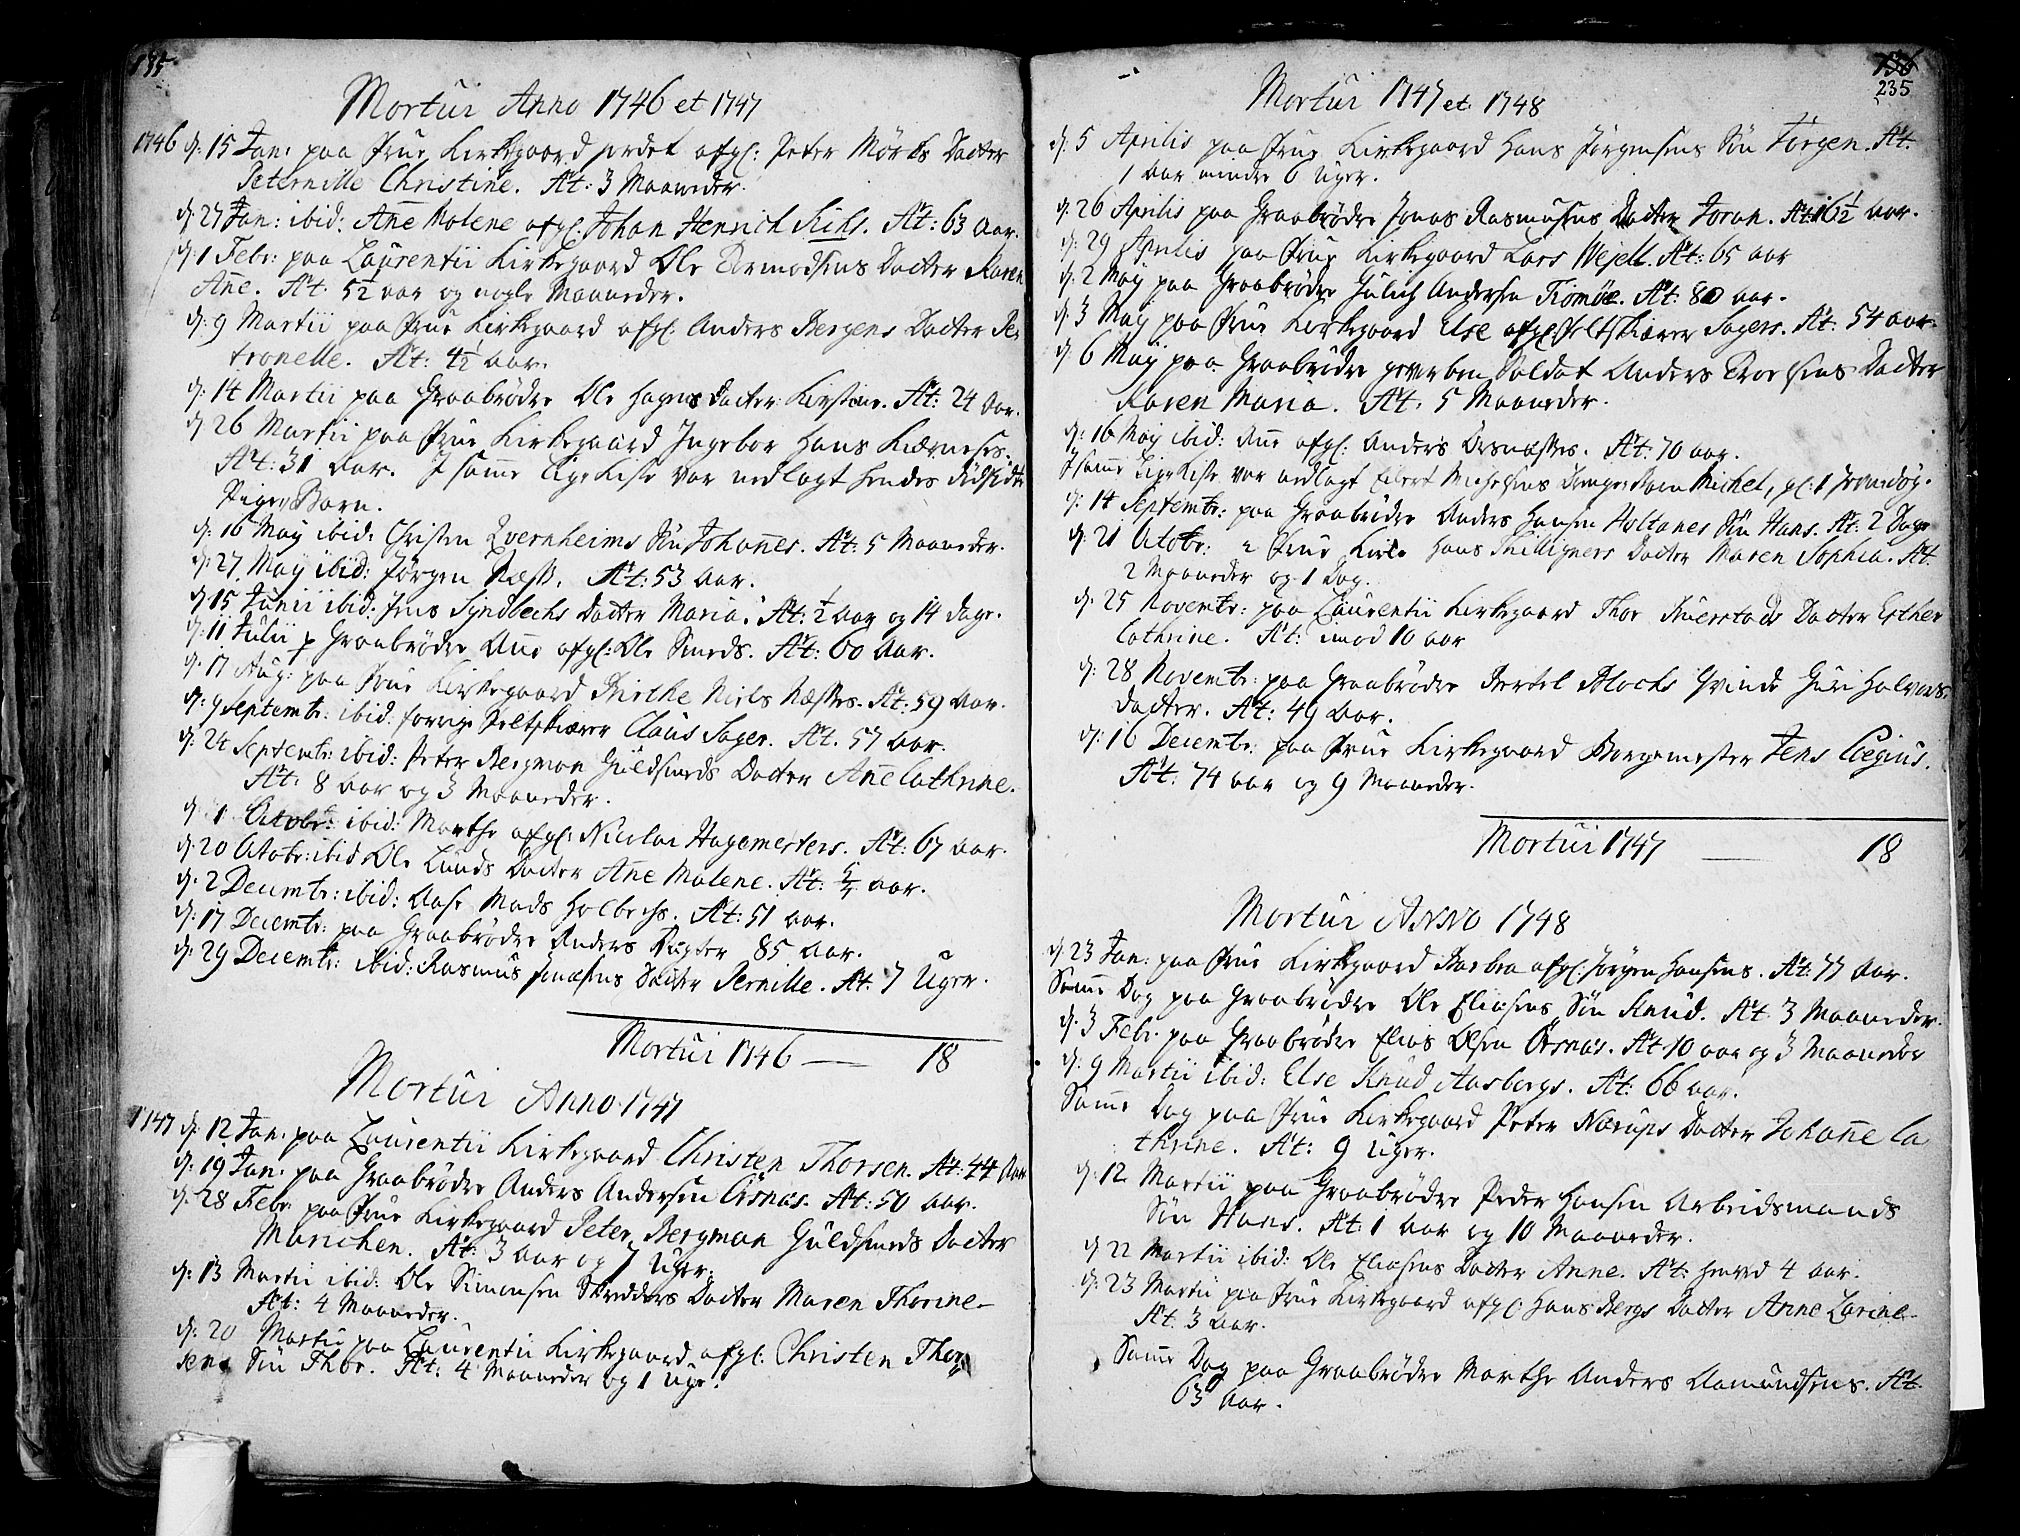 135
Mortui Anno 1746 et 1747
1746 d: 15 Jan: paa Frue Kirkegaard jordet afgl: Peter Mörks Dacter
Peternille Christine. Æt: 3 Maaneder.
d. 27 Jan: ibid: Añe Molene afgl. Johan Henrich Kihls. Æt: 63 Aar.
d: 1 Febr: paa Laurentii Kirkegaard Ole Dacter Karen
Añe. Æt. 5½ aar og nogle Maaneder.
d: 9 Martii paa Frue Kirkegaard afgl. Anders Bergens Dacter Pe
tronelle. Æt: 4½ aar.
d: 14 Martii paa Graabrödre Ole Hagens Dacter Kirstine. Æt: 24 Aar.
d 26 Martii paa Frue Kirkegaard Ingebor Hans
Æt: 31 Aar. I samme Liigkiste var nedlagt hendes dödfödte
Pige Barn.
d: 16 May ibid: Christen Qvernheims Sön Johannes. Æt: 5 Maaneder.
d: 27 May ibid: Jörgen Næss. Æt: 53 Aar.
d 15 Junii ibid: Jens Syndbechs Dacter Maria. Æt: ½ Aar og 14 Dage.
d: 11 Julii p Graabrödre Anne afgl: Ole Smeds. Æt: 60 Aar.
d. 17 Aug: paa Frue Kirkegaard Birthe Niels Næsses. Æt: 59 Aar.
d: 9 Septemb: ibid: forrige Feltskiærer Claus Sager. Æt. 57 Aar.
d: 24 Septemb: ibid: Peter Bergman Guldsmeds Dacter Añe Cathrine.
Æt: 8 aar og 3 Maaneder.
d: 1 Octobr: ibid: Marthe afgl: Nicolai Hagemesters. Æt: 67 aar.
d: 20 Octobr: ibid Ole Lunds Dacter Añe Malene. Æt: 5/4 aar.
d: 2 Decembr: ibid: Aase Mads Holbechs. Æt: 51 aar.
d: 17 Decembr: paa Graabrödre Anders 85 Aar.
d: 29 Decembr: ibid: Rasmus Jonasens Dacter Pernille. Æt. 7 Uger.
Mortui 1746 — 18
Mortui Anno 1747
1747 d: 12 Jan: paa Laurentii Kirkegaard Christen Thorsen. Æt: 44 Aar
d: 19 Jan: paa Graabrödre Anders Andersen Örsnæs. Æt: 50 aar.
d: 28 Febr: paa Frue Kirkegaard Peter Bergman Guldsmeds Dacter
Marichen. Æt: 3 aar og 7 Uger.
d: 13 Martii ibid: Ole Simensen Skredders Dacter Maren Thorine
Æt: 4 Maaneder.
d: 20 Martii paa Laurentii Kirkegaard afgl: Christen Thor
sens Sön Thor. Æt: 4 Maaneder og 1 Uge.
136
235
Mortui 1747 et 1748
d: 5 Aprilis paa Frue Kirkegaard Hans Jörgensens Sön Jörgen. Æt.
1 Aar mindre 6 Uger.
d: 26 Aprilis paa Graabrödre Jonas Rasmusens Dacter Joran. Æt: 16½ aar.
d: 29 Aprilis paa Frue Kirkegaard Lars Wejell. Æt: 65 aar
d: 2 Maij paa Graabrödre Gulich Andersen Tiömöe. Æt: 80 aar.
d: 3 Maij paa Frue Kirkegaard Else afgl. Feltskiærer Sagers. Æt: 54 aar.
d: 6 Maij paa Graabrödre Soldat Anders Dacter
Karen Maria. Æt. 5 Maaneder.
d: 16 Maij ibid: Ane afgl: Anders Örsnæsses. Æt: 70 aar.
I samme Liigkiste var nedlagt Eilert Michelsens Drenge Barn Michel, gl: 1
d: 14 Septembr: paa Graabrödre Anders Hansen Holtanes Sön Hans. Æt: 2 Dage
d: 21 Octobr: Frue Kirke Hans Dacter Maren Sophia. Æt.
2 Maaneder og 1 Dag.
d: 25 Novembr: paa Laurentii Kirkegaard Thor Dacter Esther
Cathrine. Æt: imod 10 aar
d: 28 Novembr: paa Graabrödre Bertel Blochs Qvinde Guri Halvors
dacter. Æt: 49 Aar.
d: 16 Decembr: paa Frue Kirkegaard Borgemester Jens Coegius.
Æt: 74 aar og 9 Maaneder.
Mortui 1747 — 18
Mortui ANNO 1748
d: 23 Jan: paa Frue Kirkegaard Barbra afgl: Jörgen Hansens. Æt: 77 aar.
Samme Dag paa Graabrödre Ole Eliasens Sön Knud. Æt. 3 Maaneder.
d: 3 Febr: paa Graabrödre Elias Olsen Örsnæs. Æt. 10 aar og 3 Maaneder
d: 9 Martii ibid: Else Knud Aasbergs. Æt: 66 aar.
Samme Dag paa Frue Kirkegaard Peter Narups Dacter Johañe Ca
thrine. Æt: 9 Uger.
d: 12 Martii paa Graabrödre Peder Hansen Arbeidsmands
Sön Hans. Æt: 1 aar og 10 Maaneder.
d 22 Martii ibid: Ole Eliasens Dacter Anne. Æt: henved 4 aar.
d: 23 Martii paa Frue Kirkegaard afgl: Hans Bergs Dacter Anne Zarine
Æt. 3 aar.
Samme Dag paa Graabrödre Marthe Anders Aamundsens. Æt.
63 Aar.